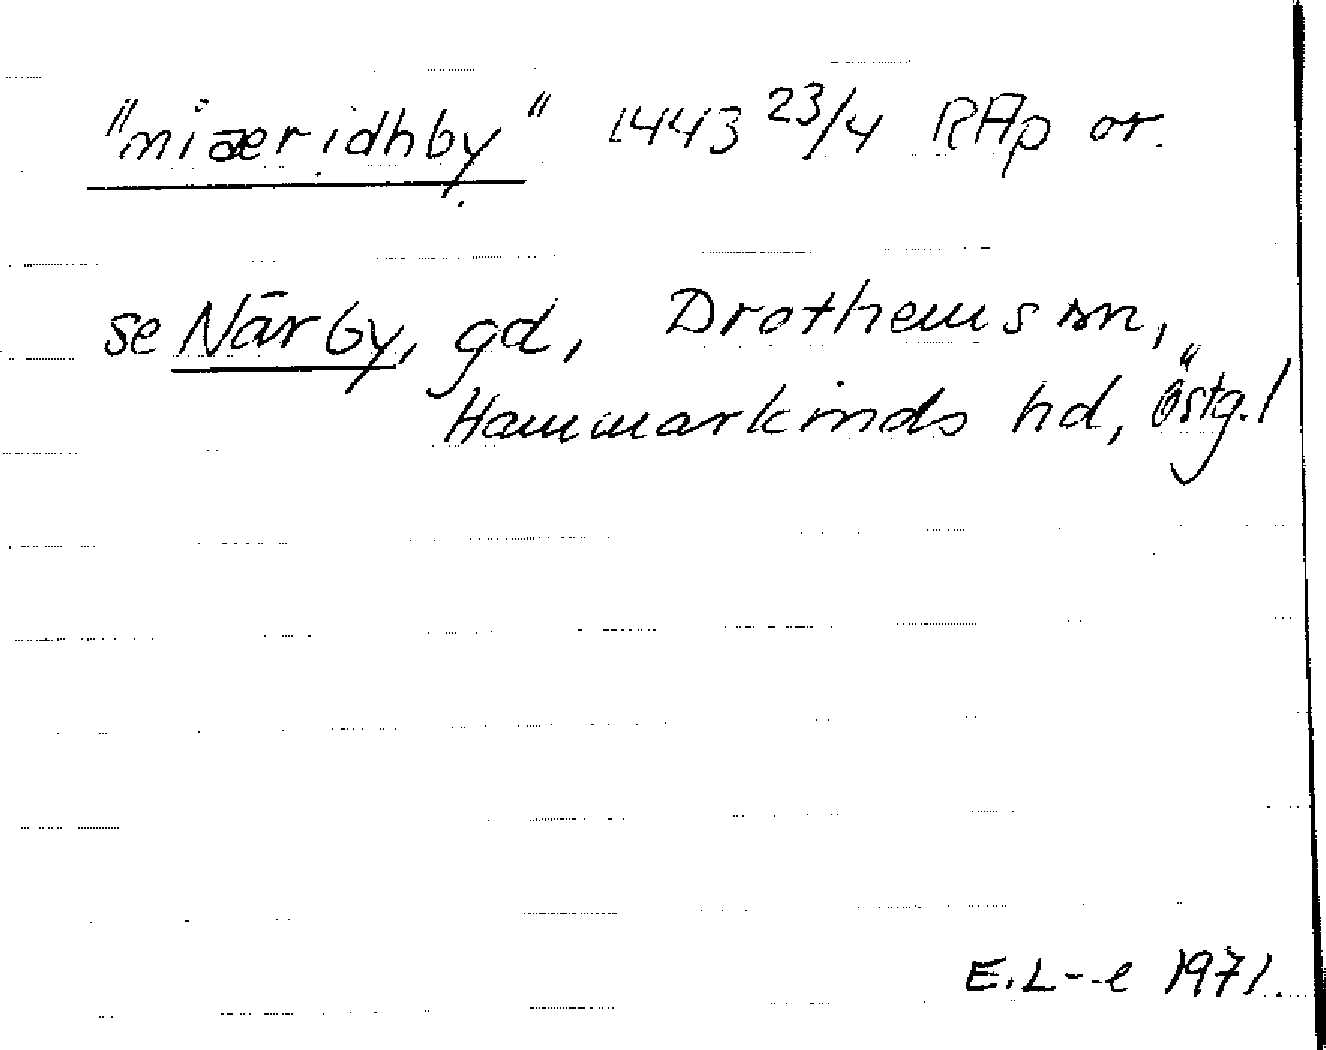 "niæridhby" 1443 23/4 RAp or.
se Närby, gd, Drothems sn,
Hammarkinds hd, Östg.l
E.L-e 1971.